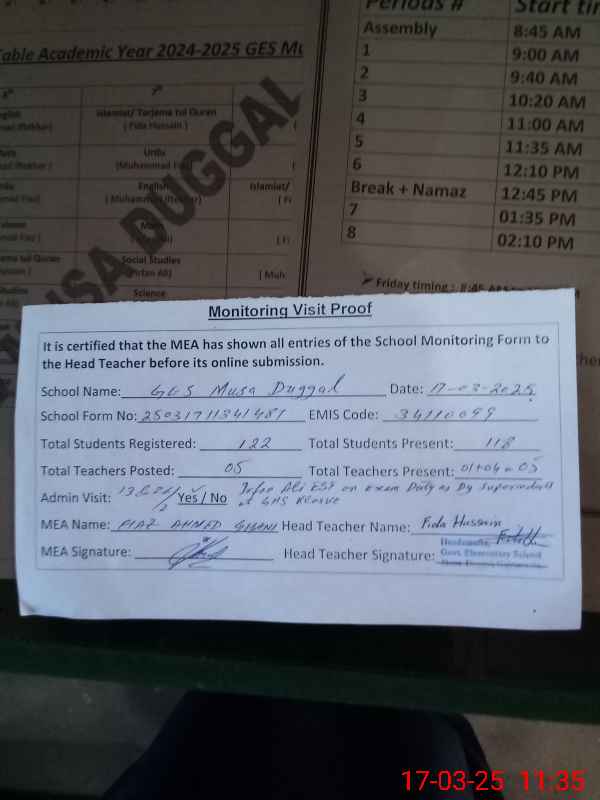 Table Academic Year 2024-2025 GES Mu
6th
7th
Islamiat/ Tarjama tul Quran
( Fida Hussain )
Urdu
English
( Muhammad Iftekhar)
Islamiat/
Social Studies
(Irfan Ali)
( Muh
Science
MUSA DUGGAL
Periods # Start tir
Assembly 8:45 AM
1 9:00 AM
2 9:40 AM
3 10:20 AM
4 11:00 AM
5 11:35 AM
6 12:10 PM
Break + Namaz 12:45 PM
7 01:35 PM
8 02:10 PM
Friday timing : 8:45
Monitoring Visit Proof
It is certified that the MEA has shown all entries of the School Monitoring Form to
the Head Teacher before its online submission.
School Name: GES Musa Duggal Date: 17-03-2025
School Form No: 25031711341481 EMIS Code: 34110099
Total Students Registered: 122 Total Students Present: 118
Total Teachers Posted: 05 Total Teachers Present: 01+04=05
Admin Visit: Yes / No Irfan Ali EST on Exam Duty as Dy Superintendent
at GHS
MEA Name: AHMED GHANI Head Teacher Name: Fida Hussain
MEA Signature: Head Teacher Signature:
Headmaster
Govt. Elementary School
17-03-25 11:35